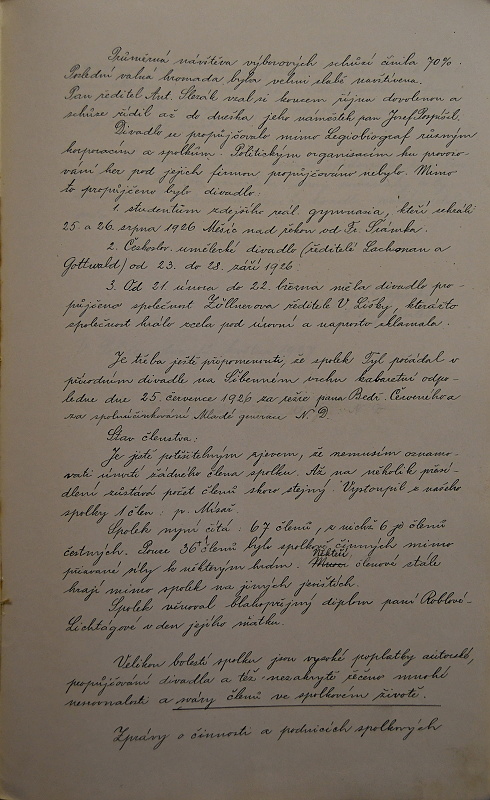 Průměrná návštěva výborových schůzí činila 70%.
Poslední valná hromada byla velmi slabě navštívena.
Pan ředitel Ant. Slezák vzal si koncem října dovolenou a
schůze řídil až do dneška jeho náměstek pan Josef Pospíšil.
Divadlo se propůjčovalo mimo Legiobiograf různým
korporacím a spolkům. Politickým organisacím ku provozo-
vání her pod jejich firmou propůjčováno nebylo. Mimo
to propůjčeno bylo divadlo:
1. studentům zdejšího reál. gymnasia, kteří sehráli
25. a 26. srpna 1926 Měsíc nad řekou od Fr. Šrámka.
2. Českoslov. umělecké divadlo (ředitelé Lachman a
Gottwald) od 23. do 28. září 1926.
3. Od 21 února do 22. března měla divadlo pro-
půjčeno společnost Zöllnerova ředitele V. Lišky, kterážto
společnost hrála zcela pod úrovní a naprosto sklamala.
Je třeba ještě připomenouti, že spolek Tyl pořádal v
přírodním divadle na Šibenném vrchu kabaretní odpo-
ledne dne 25. července 1926 za režie pana Bedř. Červeného a
za spoluúčinkování Mladé generace N. D.
Stav členstva:
Je jistě potěšitelným zjevem, že nemusím oznamo-
vati úmrtí žádného člena spolku. Až na několik přesí-
dlení zůstává počet členů skoro stejný. Vystoupil z našeho
spolku 1 člen: p. Misař.
Spolek nyní čítá: 67 členů, z nichž 6 je členů
čestných. Pouze 36 členů bylo spolkově činných mimo
přizvané síly k některým hrám. Někteří členové stále
hrají mimo spolek na jiných jevištích.
Spolek věnoval blahopřejný diplom paní Roblové-
Lichtágové v den jejího sňatku.
Velikou bolestí spolku jsou vysoké poplatky autorské,
propůjčování divadla a též nezakrytě řečeno mnohé
nesrovnalosti a sváry členů ve spolkovém životě.
Zprávy o činnosti a podnicích spolkových